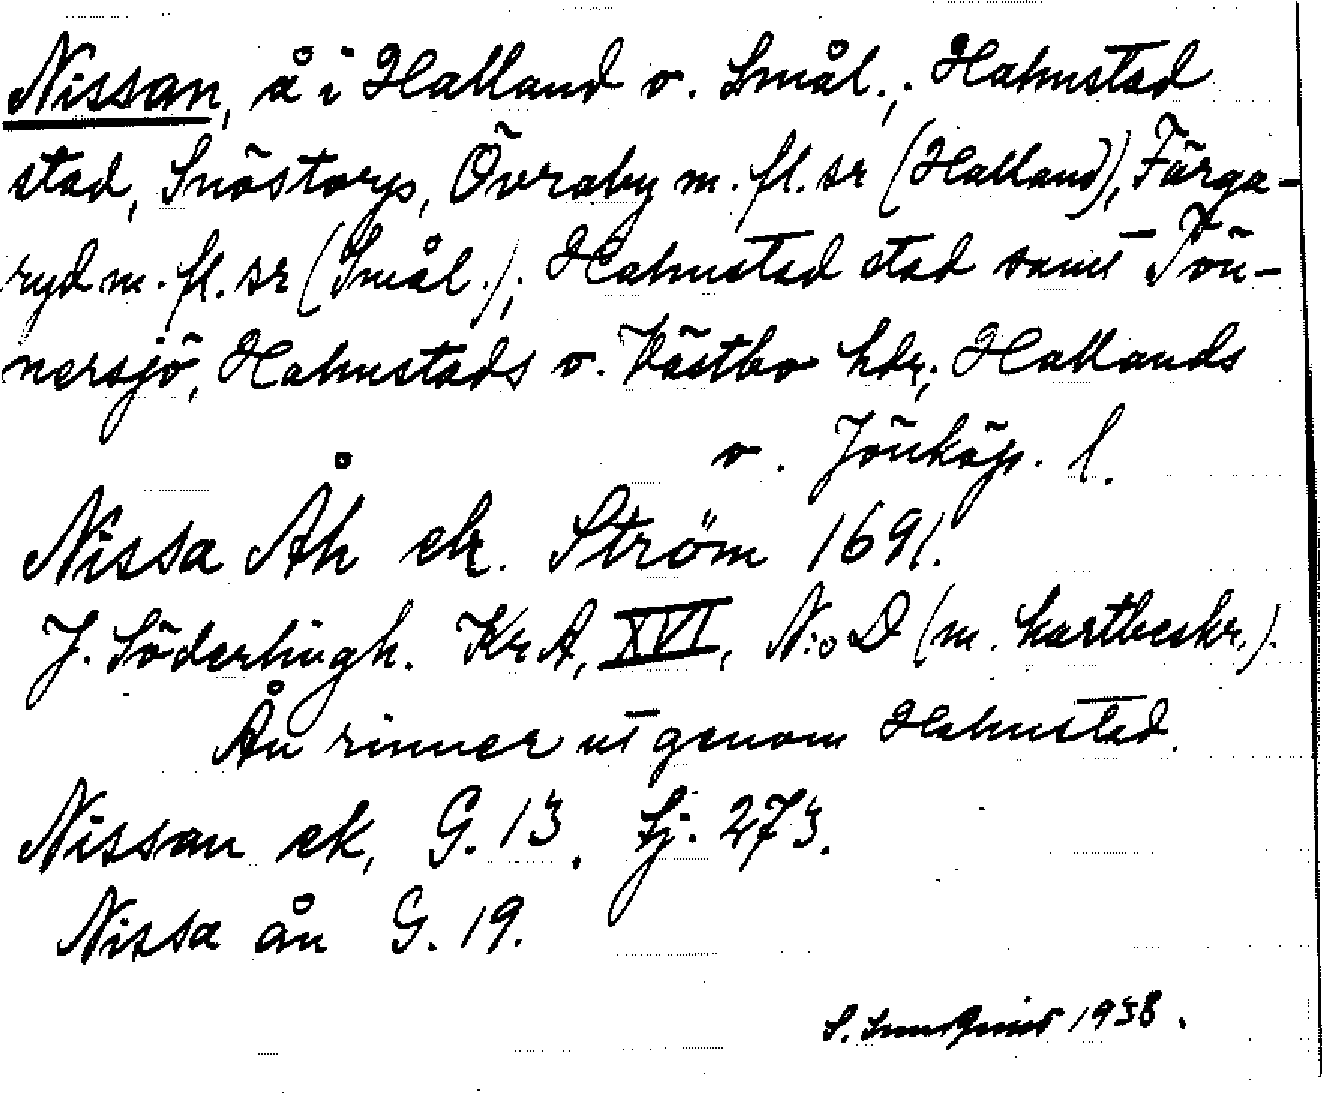 Nissan, å i Halland o. Smål.; Halmstad
stad, Snöstorp, Övraby m. fl. sr (Halland), Färga-
ryd m. fl. sr (Smål.); Halmstad stad samt Tön-
nersjö, Halmstads o. Västbo hdr; Hallands
o. Jönköp. l.
Nissa Åh ek. Ström 1691.
J. Söderhiugh. KrA, XVI, N:o D (m. kartbeskr.).
Ån rinner ut genom Halmstad.
Nissan ek, G. 13. Lj. 273.
Nissa ån G. 19.
S. 1938.